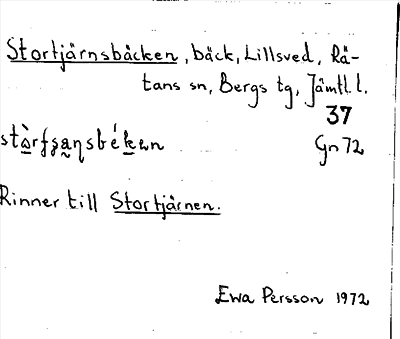 Stortjärnsbäcken, bäck, Lillsved, Rä-
tans sn, Bergs tg, Jämtl. l.
37
Gn 72
Rinner till Stortjärnen.
Ewa Persson 1972